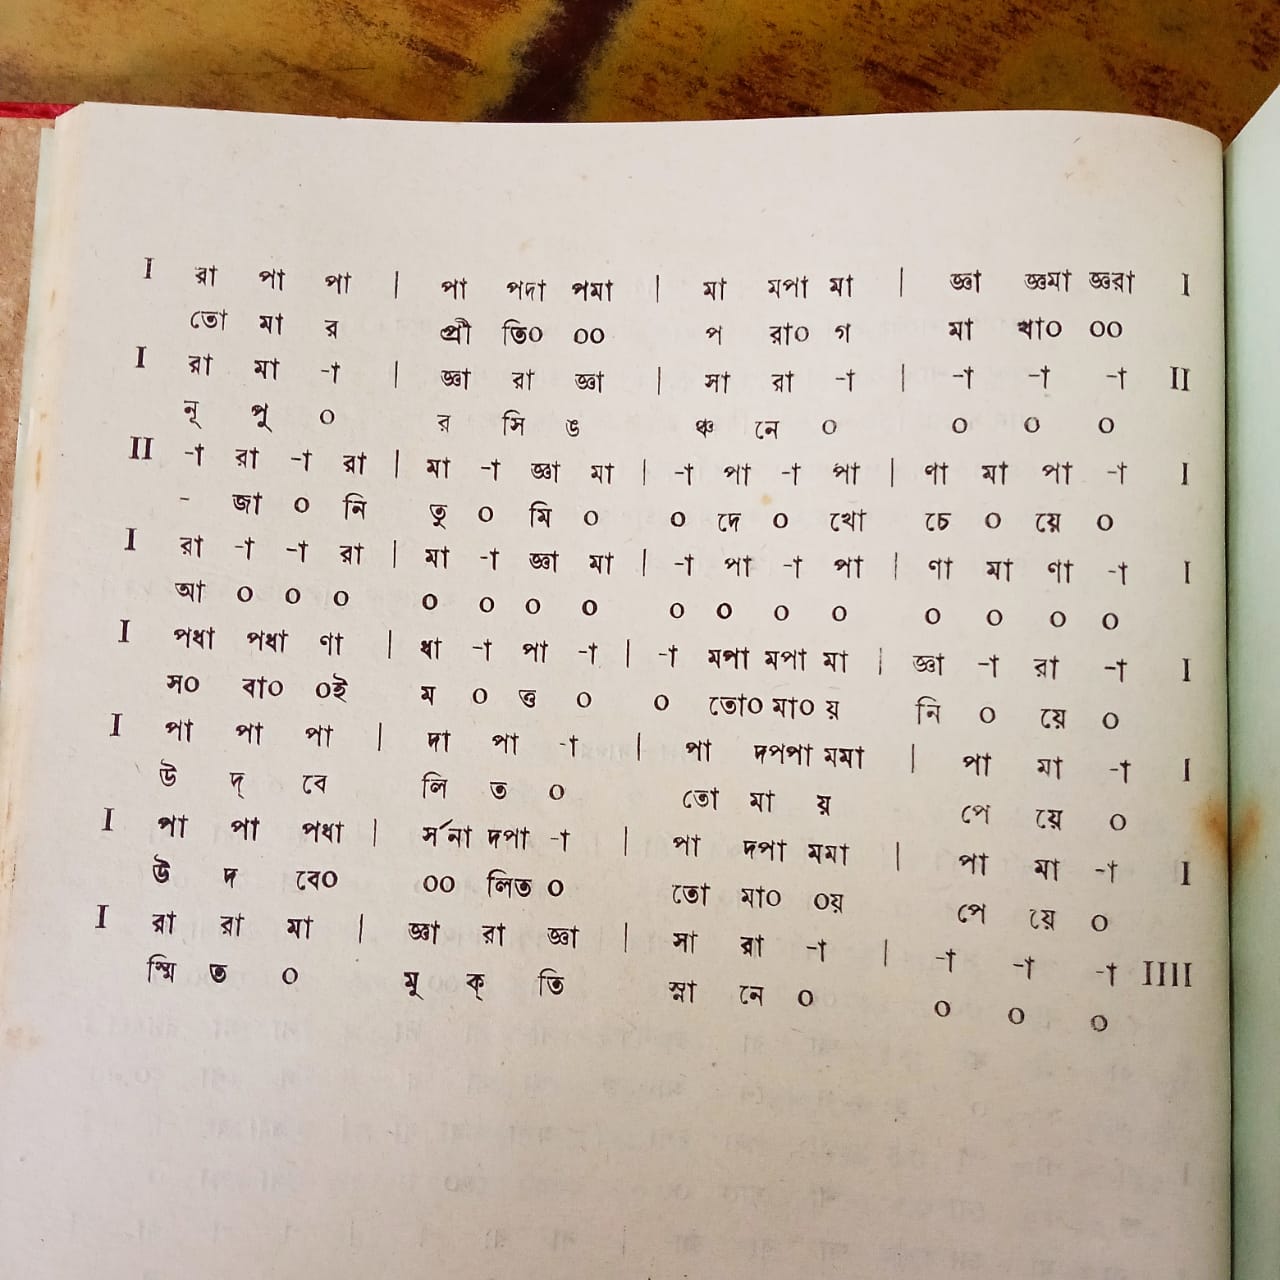 I রা পা পা | পা পদা পমা | মা মপা মা | জ্ঞা জ্ঞমা জ্ঞরা I
তো মা র প্রী তি০ ০০ প রা০ গ মা খা০ ০০
I রা মা -া | জ্ঞা রা জ্ঞা | সা রা -া | -া -া -া II
নৃ পু ০ র সি ঙ ঞ্চ নে ০ ০ ০ ০
II -া রা -া রা | মা -া জ্ঞা মা | -া পা -া পা | ণা মা পা -া I
- জা ০ নি তু ০ মি ০ ০ দে ০ খো চে ০ য়ে ০
I রা -া -া রা | মা -া জ্ঞা মা | -া পা -া পা | ণা মা ণা -া I
আ ০ ০ ০ ০ ০ ০ ০ ০ ০ ০ ০ ০ ০ ০ ০
I পধা পধা ণা | ধা -া পা -া | -া মপা মপা মা | জ্ঞা -া রা -া I
স০ বা০ ০ই ম ০ ত্ত ০ ০ তো০ মা০ য় নি ০ য়ে ০
I পা পা পা | দা পা -া | পা দপপা মমা | পা মা -া I
উ দ্ বে লি ত ০ তো মা য় পে য়ে ০
I পা পা পধা | র্সনা দপা -া | পা দপা মমা | পা মা -া I
উ দ বে০ ০০ লিত ০ তো মা০ ০য় পে য়ে ০
I রা রা মা | জ্ঞা রা জ্ঞা | সা রা -া | -া -া -া IIII
স্মি ত ০ মু ক্ তি স্না নে ০ ০ ০ ০